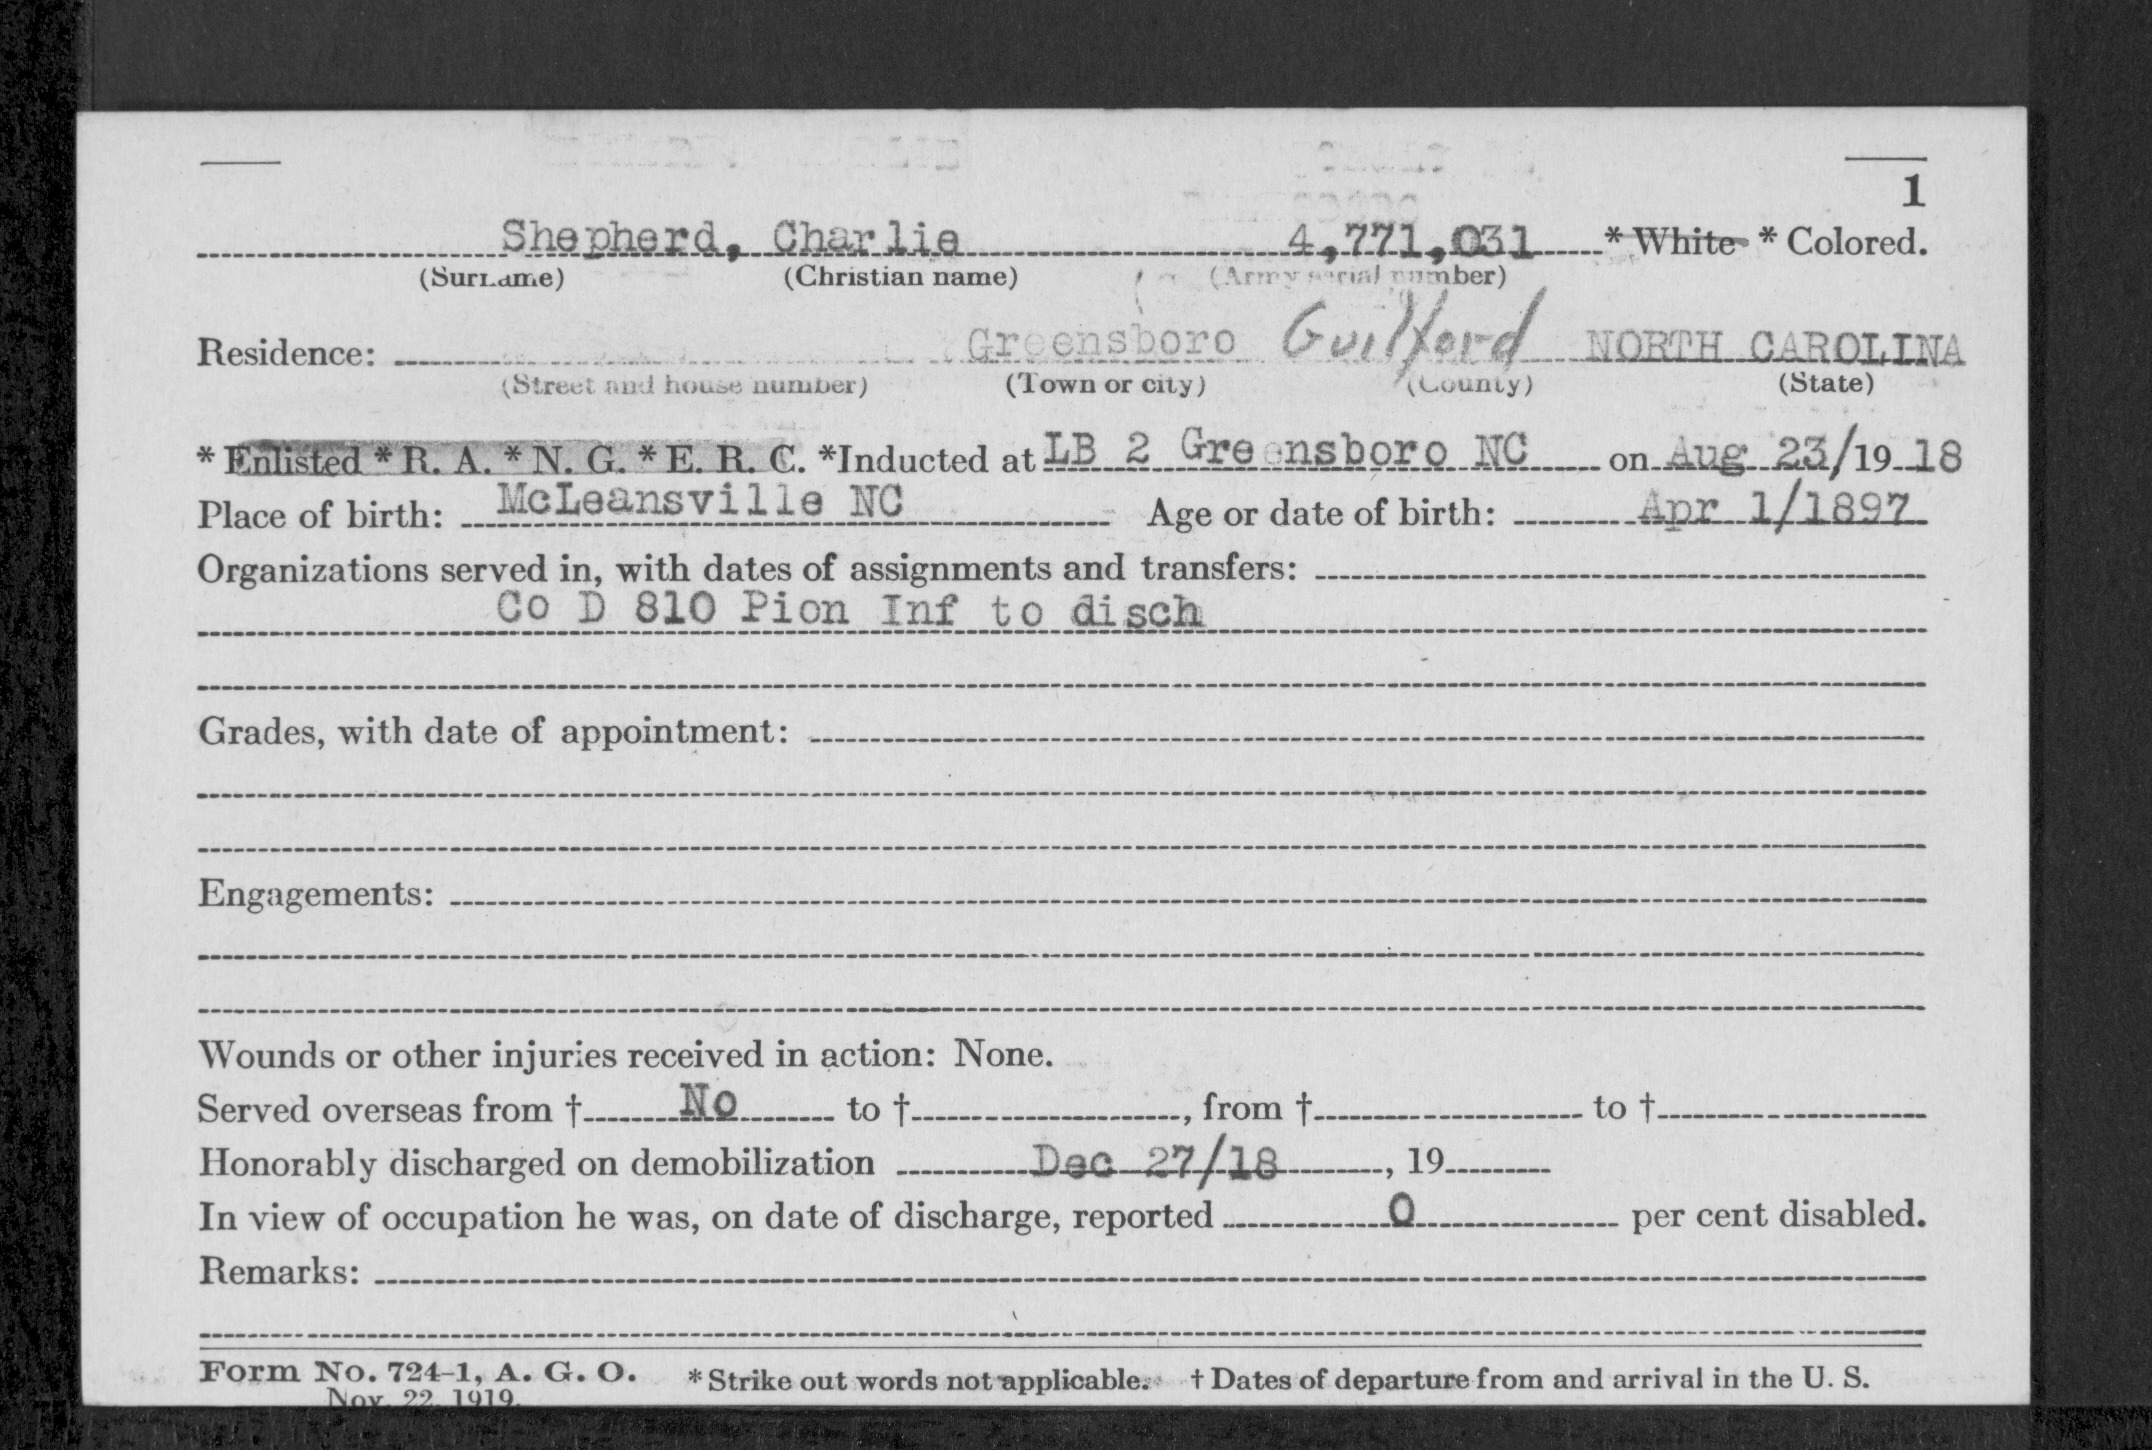 1
Shepherd, Charlie 4,771,031 * White * Colored.
(Surname) (Christian name) (Army serial number)
Residence: Greensboro Guilford NORTH CAROLINA
(Street and house number) (Town or city) (County) (State)
* Enlisted * R. A. * N. G. * E. R. C. *Inducted at LB 2 Greensboro NC on Aug 23/19 18
Place of birth: McLeansville NC Age or date of birth: Apr 1/1897
Organizations served in, with dates of assignments and transfers:
Co D 810 Pion Inf to disch
Grades, with date of appointment:
Engagements:
Wounds or other injuries received in action: None.
Served overseas from † No to †, from † to †
Honorably discharged on demobilization Dec 27/18, 19
In view of occupation he was, on date of discharge, reported 0 per cent disabled.
Remarks:
Form No. 724-1, A. G. O. * Strike out words not applicable. † Dates of departure from and arrival in the U. S.
Nov. 22, 1919.